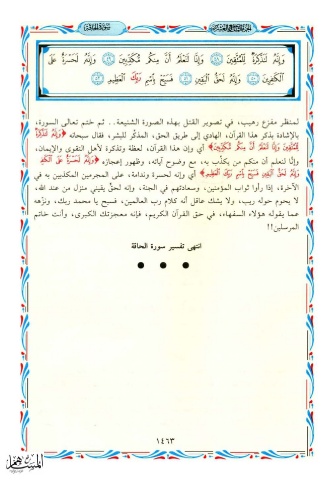 سورة الحاقة
وَإِنَّهُ لَتَذْكِرَةٌ لِّلْمُتَّقِينَ ٤٨ وَإِنَّا لَنَعْلَمُ أَنَّ مِنكُم مُّكَذِّبِينَ ٤٩ وَإِنَّهُ لَحَسْرَةٌ عَلَى
ٱلْكَٰفِرِينَ ٥٠ وَإِنَّهُ لَحَقُّ ٱلْيَقِينِ ٥١ فَسَبِّحْ بِٱسْمِ رَبِّكَ ٱلْعَظِيمِ ٥٢
لمنظر مفزع رهيب، في تصوير القتل بهذه الصورة الشنيعة.. ثم ختم تعالى السورة،
بالإشادة بذكر هذا القرآن، الهادي إلى طريق الحق، المذكِّر للبشر، فقال سبحانه ﴿وَإِنَّهُ لَتَذْكِرَةٌ
لِّلْمُتَّقِينَ وَإِنَّا لَنَعْلَمُ أَنَّ مِنكُم مُّكَذِّبِينَ﴾ أي وإن هذا القرآن، لعظة وتذكرة لأهل التقوى والإيمان،
وإنَّا لنعلم أن منكم من يكذِّب به، مع وضوح آياته، وظهور إعجازه ﴿وَإِنَّهُ لَحَسْرَةٌ عَلَى ٱلْكَٰفِرِينَ
وَإِنَّهُ لَحَقُّ ٱلْيَقِينِ فَسَبِّحْ بِٱسْمِ رَبِّكَ ٱلْعَظِيمِ﴾ أي وإنه لحسرة وندامة، على المجرمين المكذبين به في
الآخرة، إذا رأوا ثواب المؤمنين، وسعادتهم في الجنة، وإنه لحقٌّ يقيني منزل من عند الله،
لا يحوم حوله ريب، ولا يشك عاقل أنه كلام رب العالمين، فسبح يا محمد ربك، ونزِّهه
عما يقوله هؤلاء السفهاء، في حق القرآن الكريم، فإنه معجزتك الكبرى، وأنت خاتم
المرسلين!!
انتهى تفسير سورة الحاقة
١٤٦٣